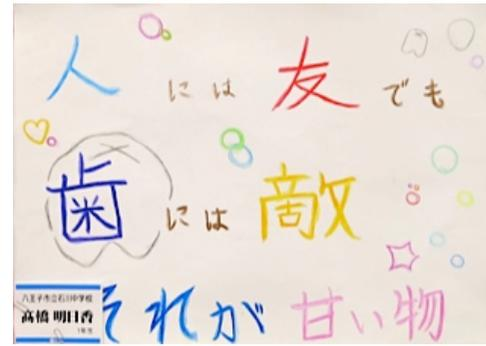 人には友でも
歯には敵
それが甘い物
八王子市立石川中学校
髙橋 明日香
1年生